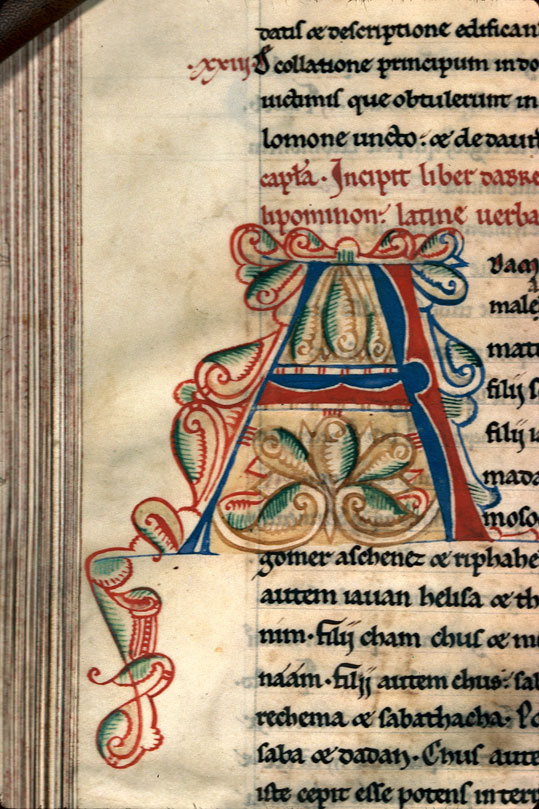 datis & descriptione edifican
.xxiij. D collatione principum in do
uictimis que obtulerunt in
lomone uncto: & de dauit
capła. Incipit liber dabre
lipominon: latine uerba
A
DAM
male
matu
filij
filij ia
mada
mosoc
gomer aschenez & riphahe
autem iauan helisa & th
nim. filij cham chus & me
náám. filij autem chus: sab
rechema & sabathacha. Po
saba & dadan. Chus aute
iste cepit esse potens in terr